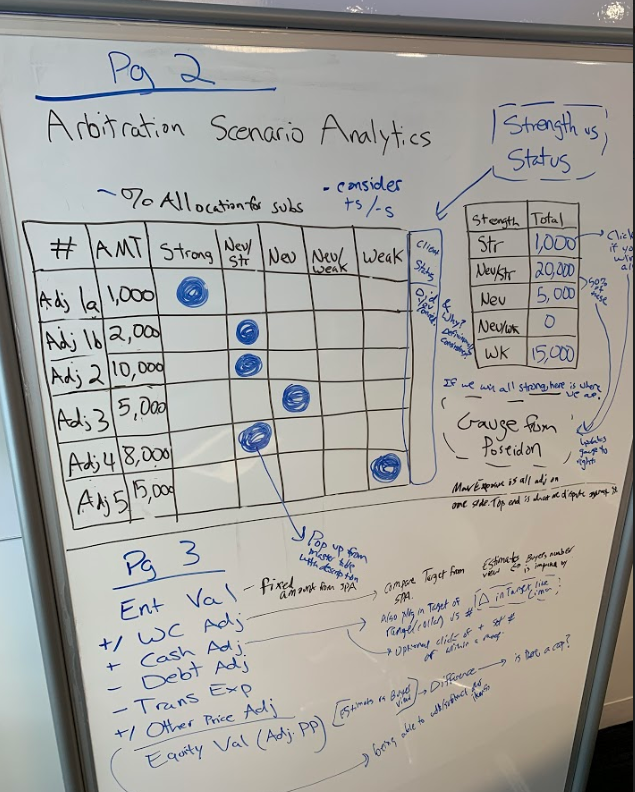 Pg 2
Arbitration Scenario Analytics
Strength vs
Status
~ % Allocation for subs
- consider
+s/-s
# AMT Strong Neu/str Neu Neu/weak Weak
Client Status
Adj 1a 1,000
Adj 1b 2,000
Adj 2 10,000
Adj 3 5,000
Adj 4 8,000
Adj 5 15,000
& Why?
Strength Total
Str 1,000
Neu/str 20,000
Neu 5,000
Neu/wk 0
WK 15,000
Click
if you
win
all
50%
If we win all strong, here is where
we are.
Gauge from
Poseidon
Updates
gauge to
right
Max Exposure is all adj on
one side. Top end is
Pop up from
master table
with description
Pg 3
Ent Val - fixed
amount from SPA
+/ WC Adj
+ Cash Adj.
- Debt Adj
- Trans Exp
+/ Other Price Adj
Equity Val (Adj. PP)
Compare Target from
SPA.
Estimate vs Buyers number
view
Also plug in Target or
range (collar) vs #
Δ in Target like
Optional click of + or #
or within a
[Estimate vs Buyer
view] → Difference → is there a cap?
being able to add/subtract for